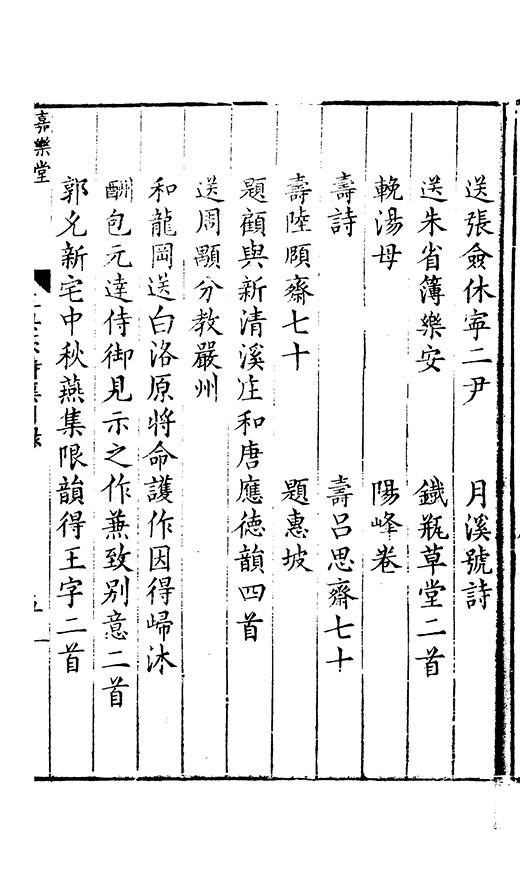 送張僉休寧二尹　月溪號詩
送朱省簿樂安　鐵瓶草堂二首
輓湯母　陽峰卷
壽詩　壽呂思齋七十
壽陸頤齋七十　題惠坡
題顧與新清溪庄和唐應德韻四首
送周顯分教嚴州
和龍岡送白洛原將命護作因得歸沐
酬包元達侍御見示之作兼致别意二首
郭允新宅中秋燕集限韻得王字二首
嘉樂堂